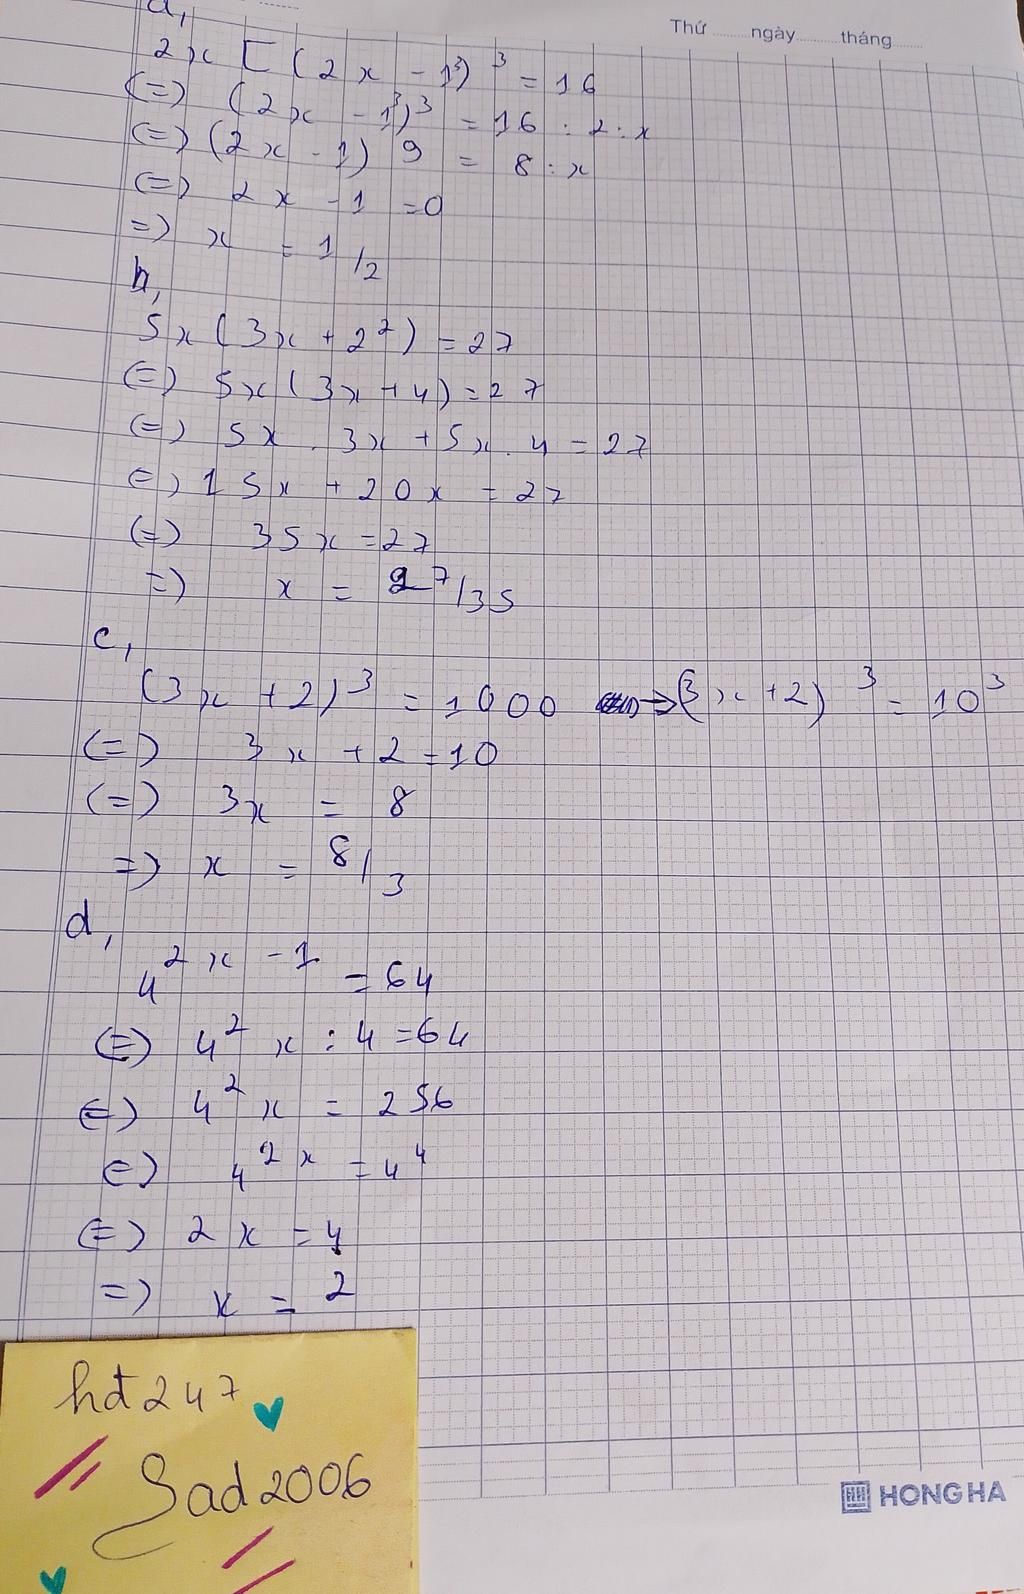 Thứ ........ ngày ........ tháng ........
a,
2x [ (2x - 1³)³ = 16
(=) (2x - 1³)³ = 16 : 2 : x
(=) (2x - 1) 9 = 8 : x
(=) 2x - 1 = 0
=) x = 1/2
b,
5x (3x + 2²) = 27
(=) 5x (3x + 4) = 27
(=) 5x . 3x + 5x . 4 = 27
=) 15x + 20x = 27
(=) 35x = 27
=) x = 27/35
c,
(3x + 2)³ = 1000 → (3x + 2)³ = 10³
(=) 3x + 2 = 10
(=) 3x = 8
=) x = 8/3
d,
4²ˣ⁻¹ = 64
(=) 4² x : 4 = 64
(=) 4² x = 256
(=) 4²ˣ = 4⁴
(=) 2x = 4
=) x = 2
hđ247
Sad2006
HONG HA